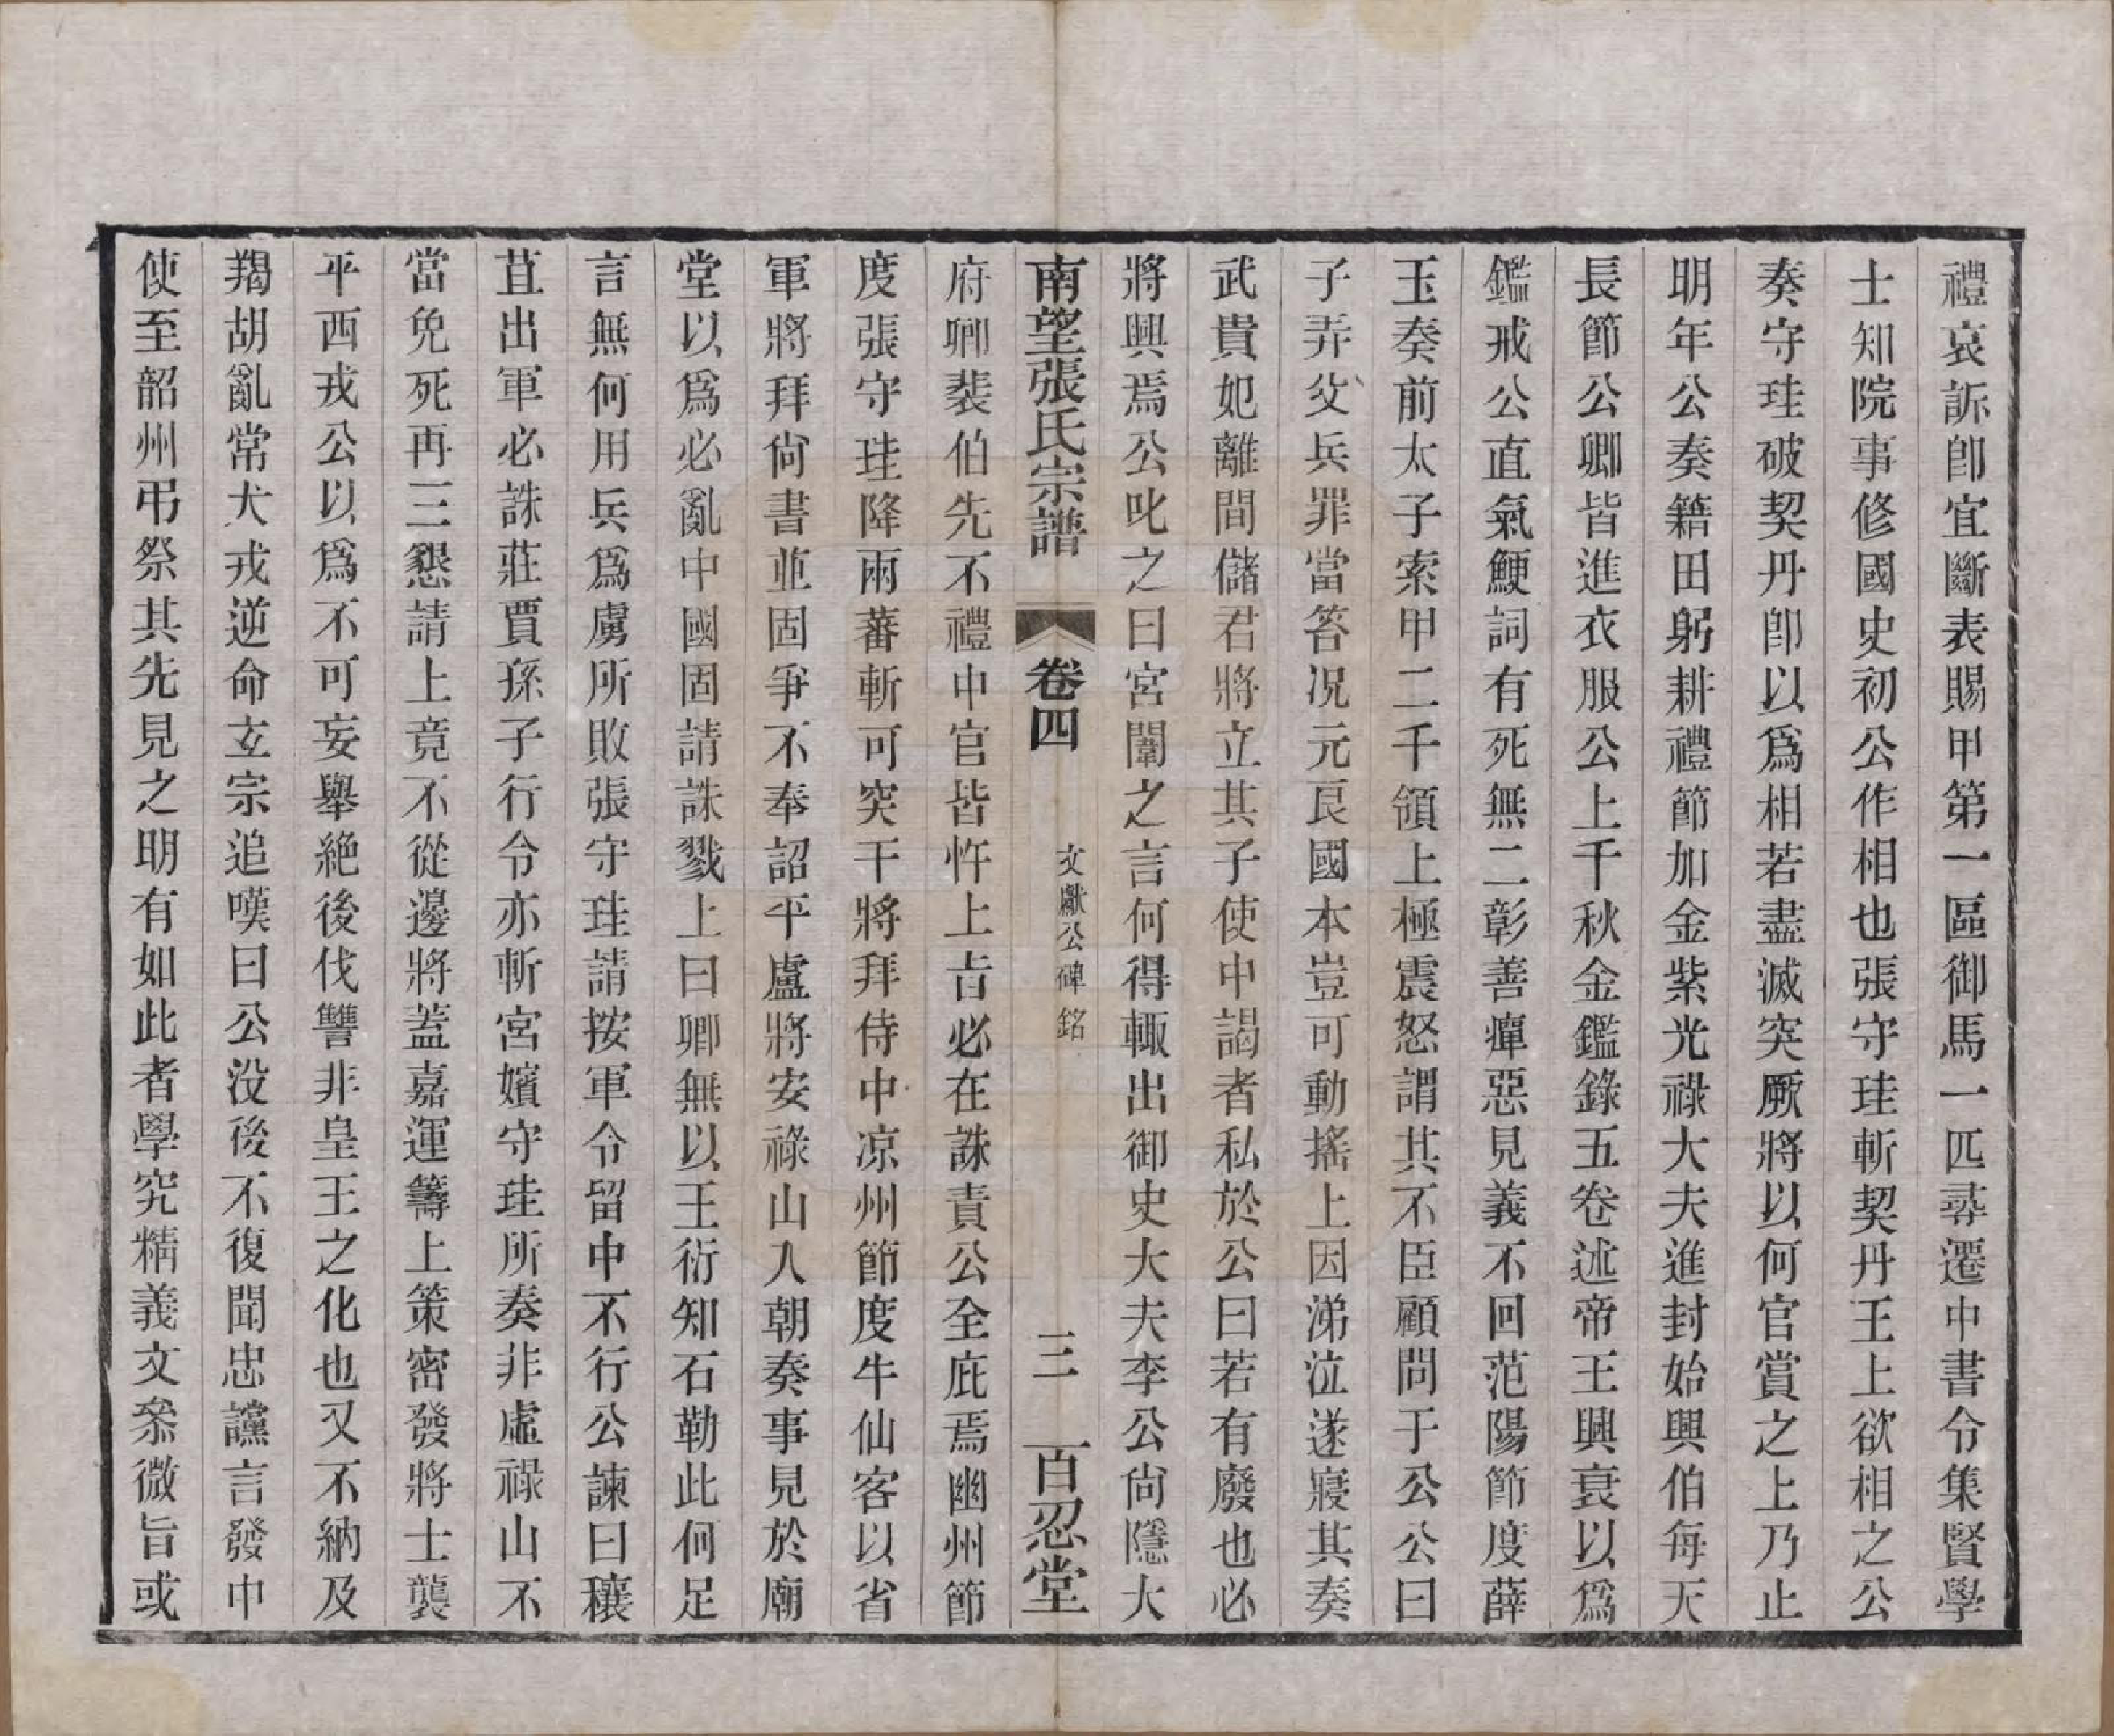 禮哀訴卽宜斷表賜甲第一區御馬一匹尋遷中書令集賢學
士知院事修國史初公作相也張守珪斬契丹王上欲相之公
奏守珪破契丹卽以爲相若盡滅突厥將以何官賞之上乃止
明年公奏籍田躬耕禮節加金紫光祿大夫進封始興伯每天
長節公卿皆進衣服公上千秋金鑑錄五卷述帝王興衰以爲
鑑戒公直氣鯁詞有死無二彰善癉惡見義不回范陽節度薛
玉奏前太子索甲二千領上極震怒謂其不臣顧問于公公曰
子弄父兵罪當笞况元良國本豈可動搖上因涕泣遂寢其奏
武貴妃離間儲君將立其子使中謁者私於公曰若有廢也必
將興焉公叱之曰宮闈之言何得輙出御史大夫李公尙隱大
南望張氏宗譜 卷四 文獻公碑銘 三 百忍堂
府卿裴伯先不禮中官皆忤上旨必在誅責公全庇焉幽州節
度張守珪降兩蕃斬可突干將拜侍中凉州節度牛仙客以省
軍將拜尙書並固爭不奉詔平盧將安祿山入朝奏事見於廟
堂以爲必亂中國固請誅戮上曰卿無以王衍知石勒此何足
言無何用兵爲虜所敗張守珪請按軍令留中不行公諫曰穰
苴出軍必誅莊賈孫子行令亦斬宮嬪守珪所奏非虛祿山不
當免死再三懇請上竟不從邊將蓋嘉運籌上策密發將士襲
平西戎公以爲不可妄舉絕後伐讐非皇王之化也又不納及
羯胡亂常犬戎逆命玄宗追嘆曰公没後不復聞忠讜言發中
使至韶州弔祭其先見之明有如此者學究精義文叅微旨或